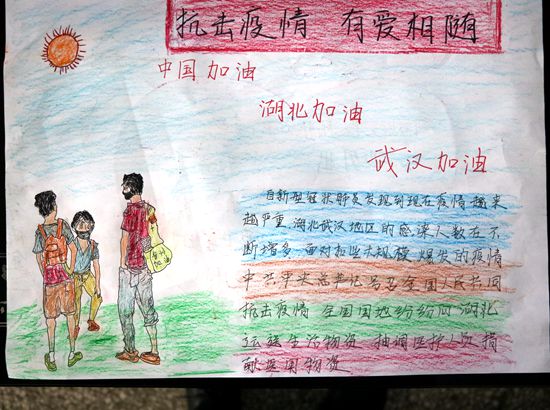 抗击疫情 有爱相随
中国加油
湖北加油
武汉加油
自新型冠状肺炎发现到现在疫情越来
越严重,湖北武汉地区的感染人数在不
断增多,面对大规模爆发的疫情
中共中央总书记号召全国人民共同
抗击疫情 全国各地纷纷向湖北
运送生活物资 抽调医护人员捐
献医用物资